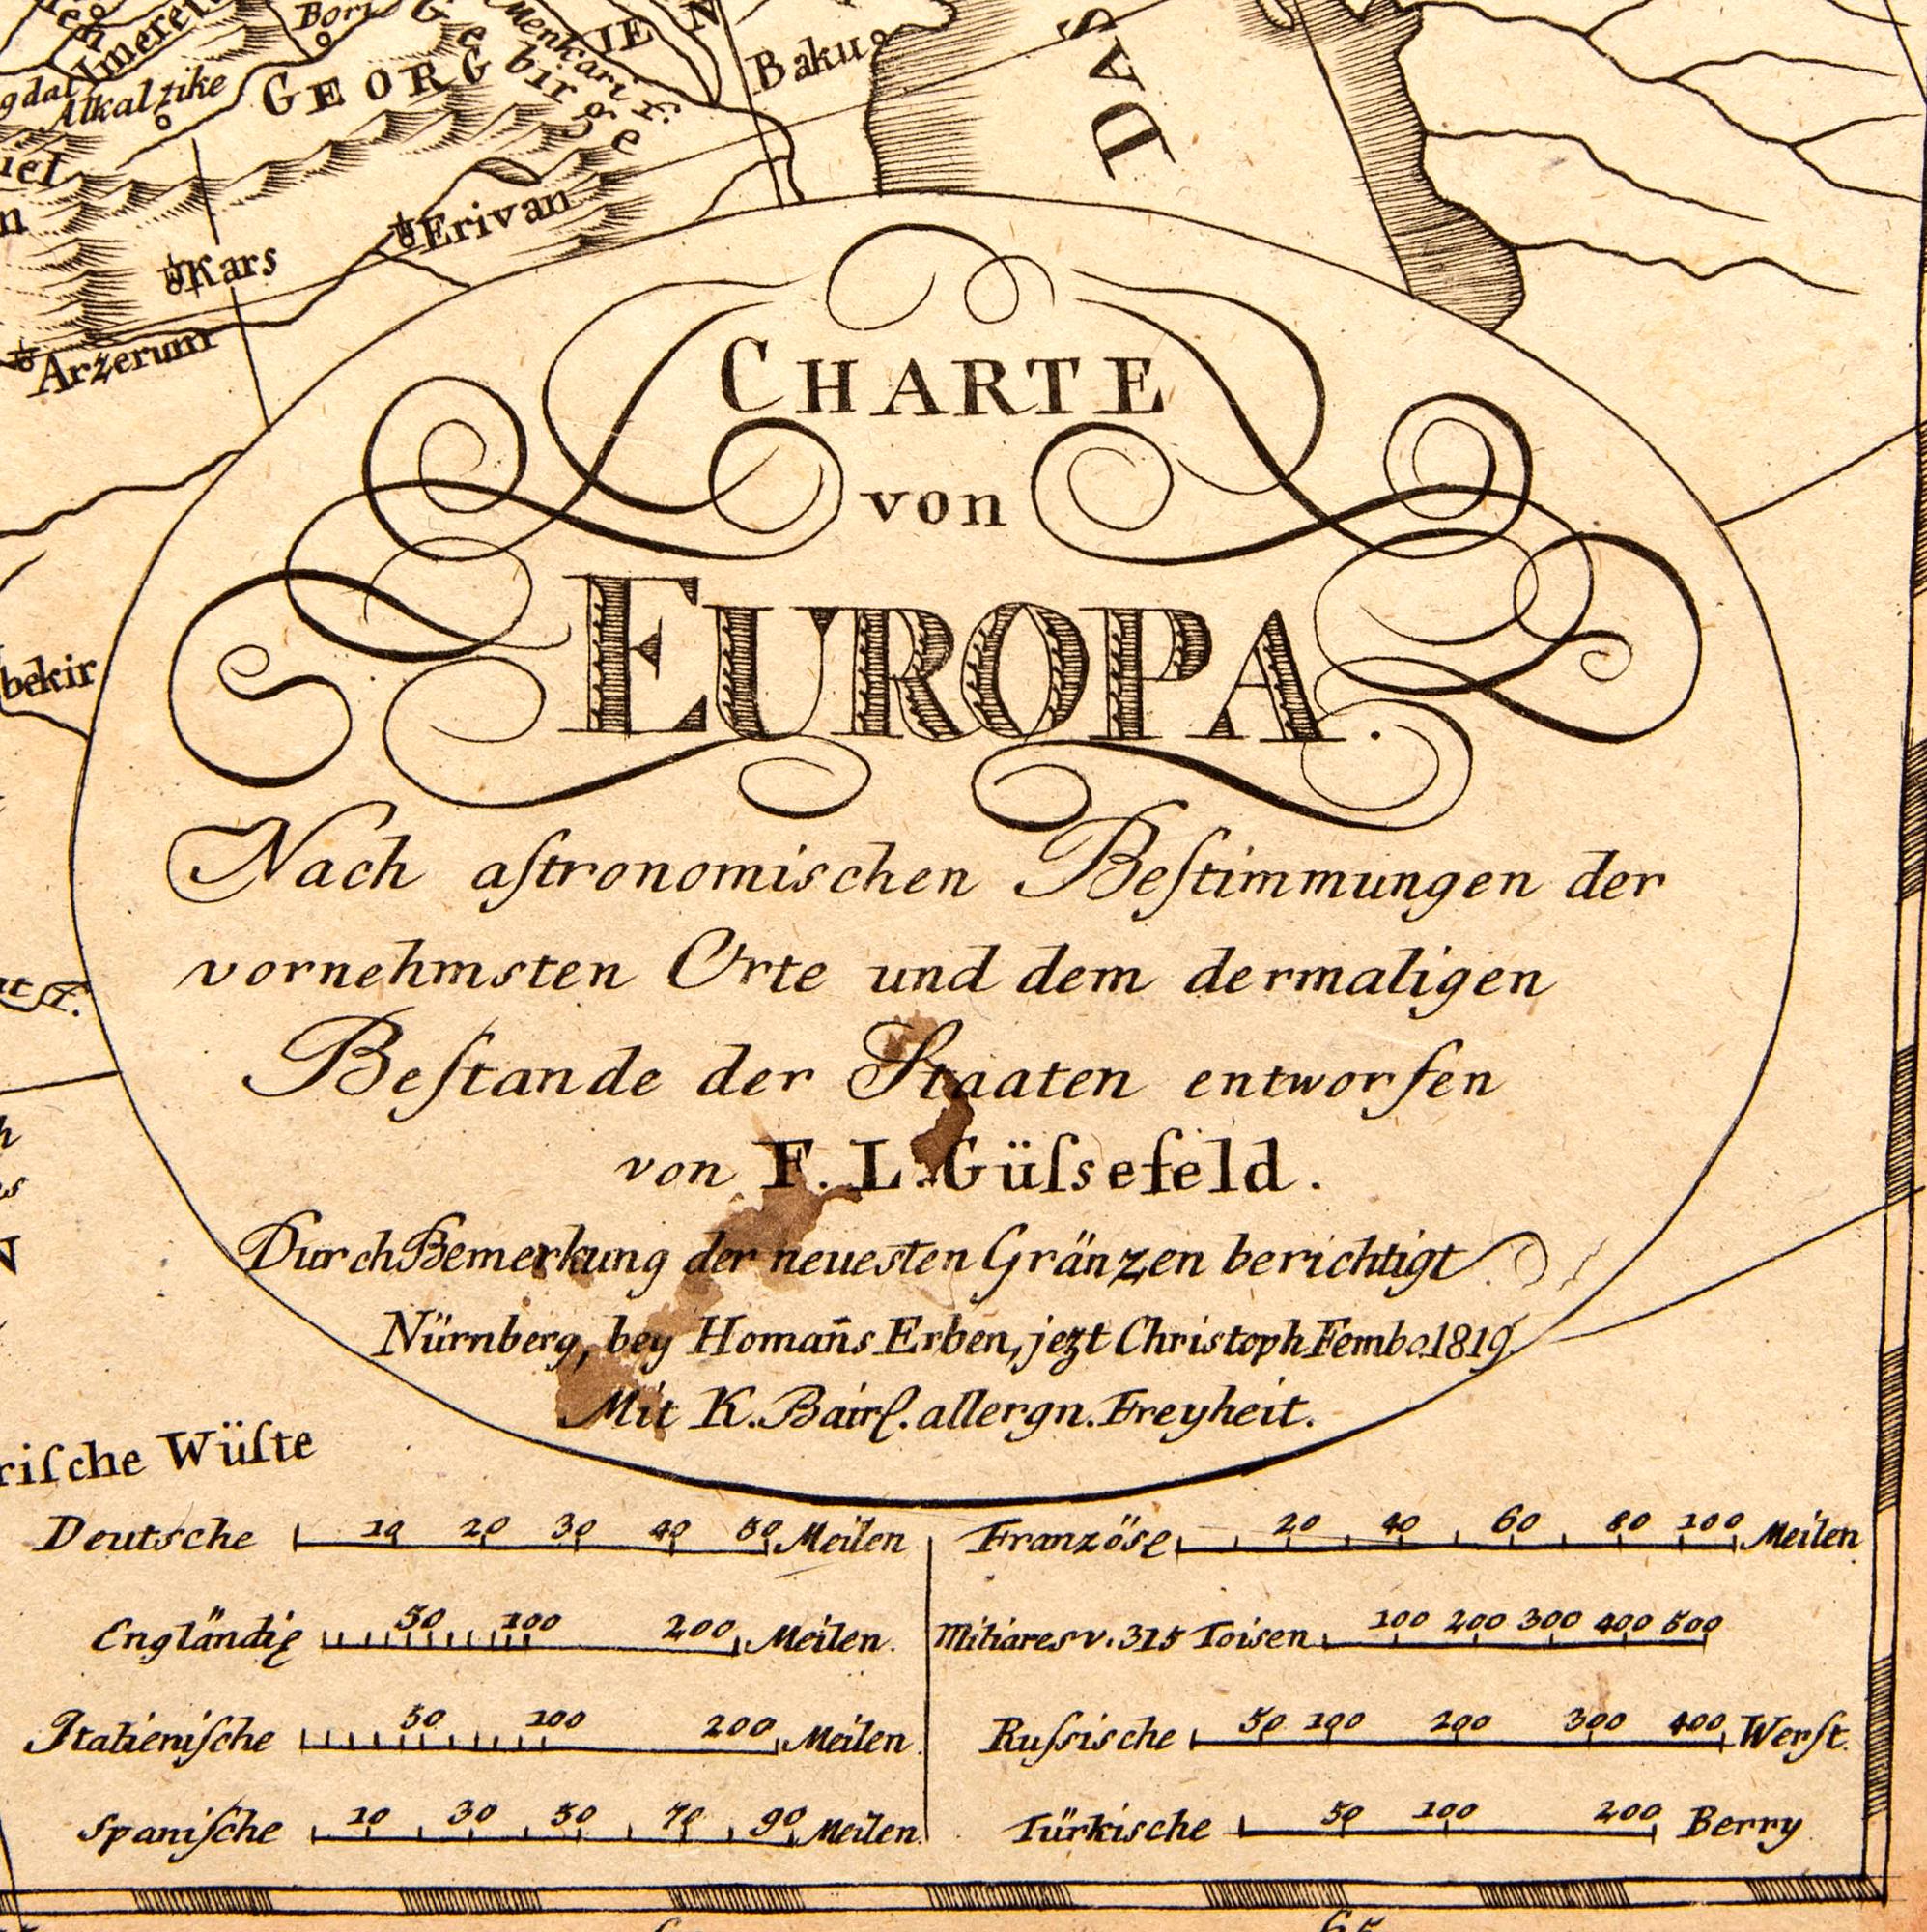 Bori
Imereti
Menkari f.
IEN
Baku
DAS
Alkalzike
GEORG
Gebirge
Erivan
Kars
Arzerum
CHARTE
von
EUROPA.
bekir
Nach aſtronomischen Beſtimmungen der
vornehmsten Orte und dem dermaligen
Beſtande der Staaten entworfen
von F. L. Güſsefeld.
Durch Bemerkung der neuesten Gränzen berichtigt
Nürnberg, bey Homan̄s Erben, jezt Christoph Fembo 1819.
Mit K. Bairſ. allergn. Freyheit.
riſche Wüſte
Deutsche 10 20 30 40 50 Meilen
Französſ. 20 40 60 80 100 Meilen
Engländiſ. 50 100 200 Meilen.
Miliares v. 315 Toisen 100 200 300 400 500
Italieniſche 50 100 200 Meilen.
Ruſsische 50 100 200 300 400 Werſt.
Spaniſche 10 30 50 70 90 Meilen.
Türkische 50 100 200 Berry
65